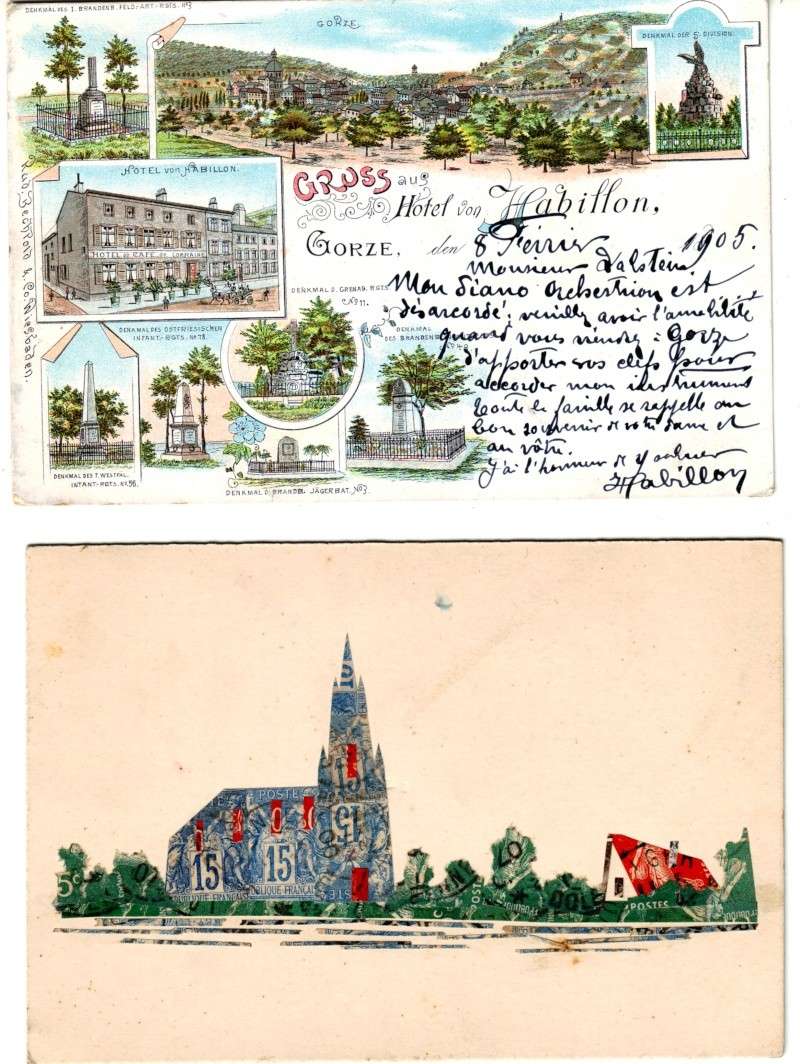 DENKMAL DES I. BRANDENB. FELD-ART-RGTS. No3
GORZE
DENKMAL DER 5. DIVISION.
HOTEL von HABILLON.
HOTEL & CAFE DE LORRAINE
GRUSS aus
Hotel von Habillon,
GORZE, den 8 Février 1905.
Monsieur Valstein
Mon Piano Orchestrion est
désarcordé. veuillez avoir l'amabilité
quand vous viendez à Gorze
d'apporter vos clefs pour
accorder mon instrument
Toute la famille se rappelle au
bon souvenir de votre dame et
au vôtre.
J'ai l'honneur de
Habillon
DENKMAL D. GRENAD. RGTS.
No 11.
DENKMAL DES OSTFRIESISCHEN
INFANT-RGTS. No 78.
DENKMAL
DES BRANDENB.
No 48
DENKMAL DES 7. WESTFAL.
INFANT-RGTS. No 56.
DENKMAL D. BRANDB. JÄGER BAT. No3.
& Co. Wiesbaden.
POSTE
15 15
15
RÉPUBLIQUE FRANÇAISE
5c
POSTES
POSTES